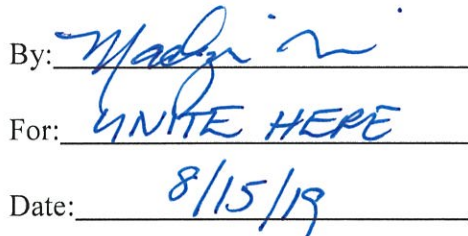 By:
For: UNITE HERE
Date: 8/15/19